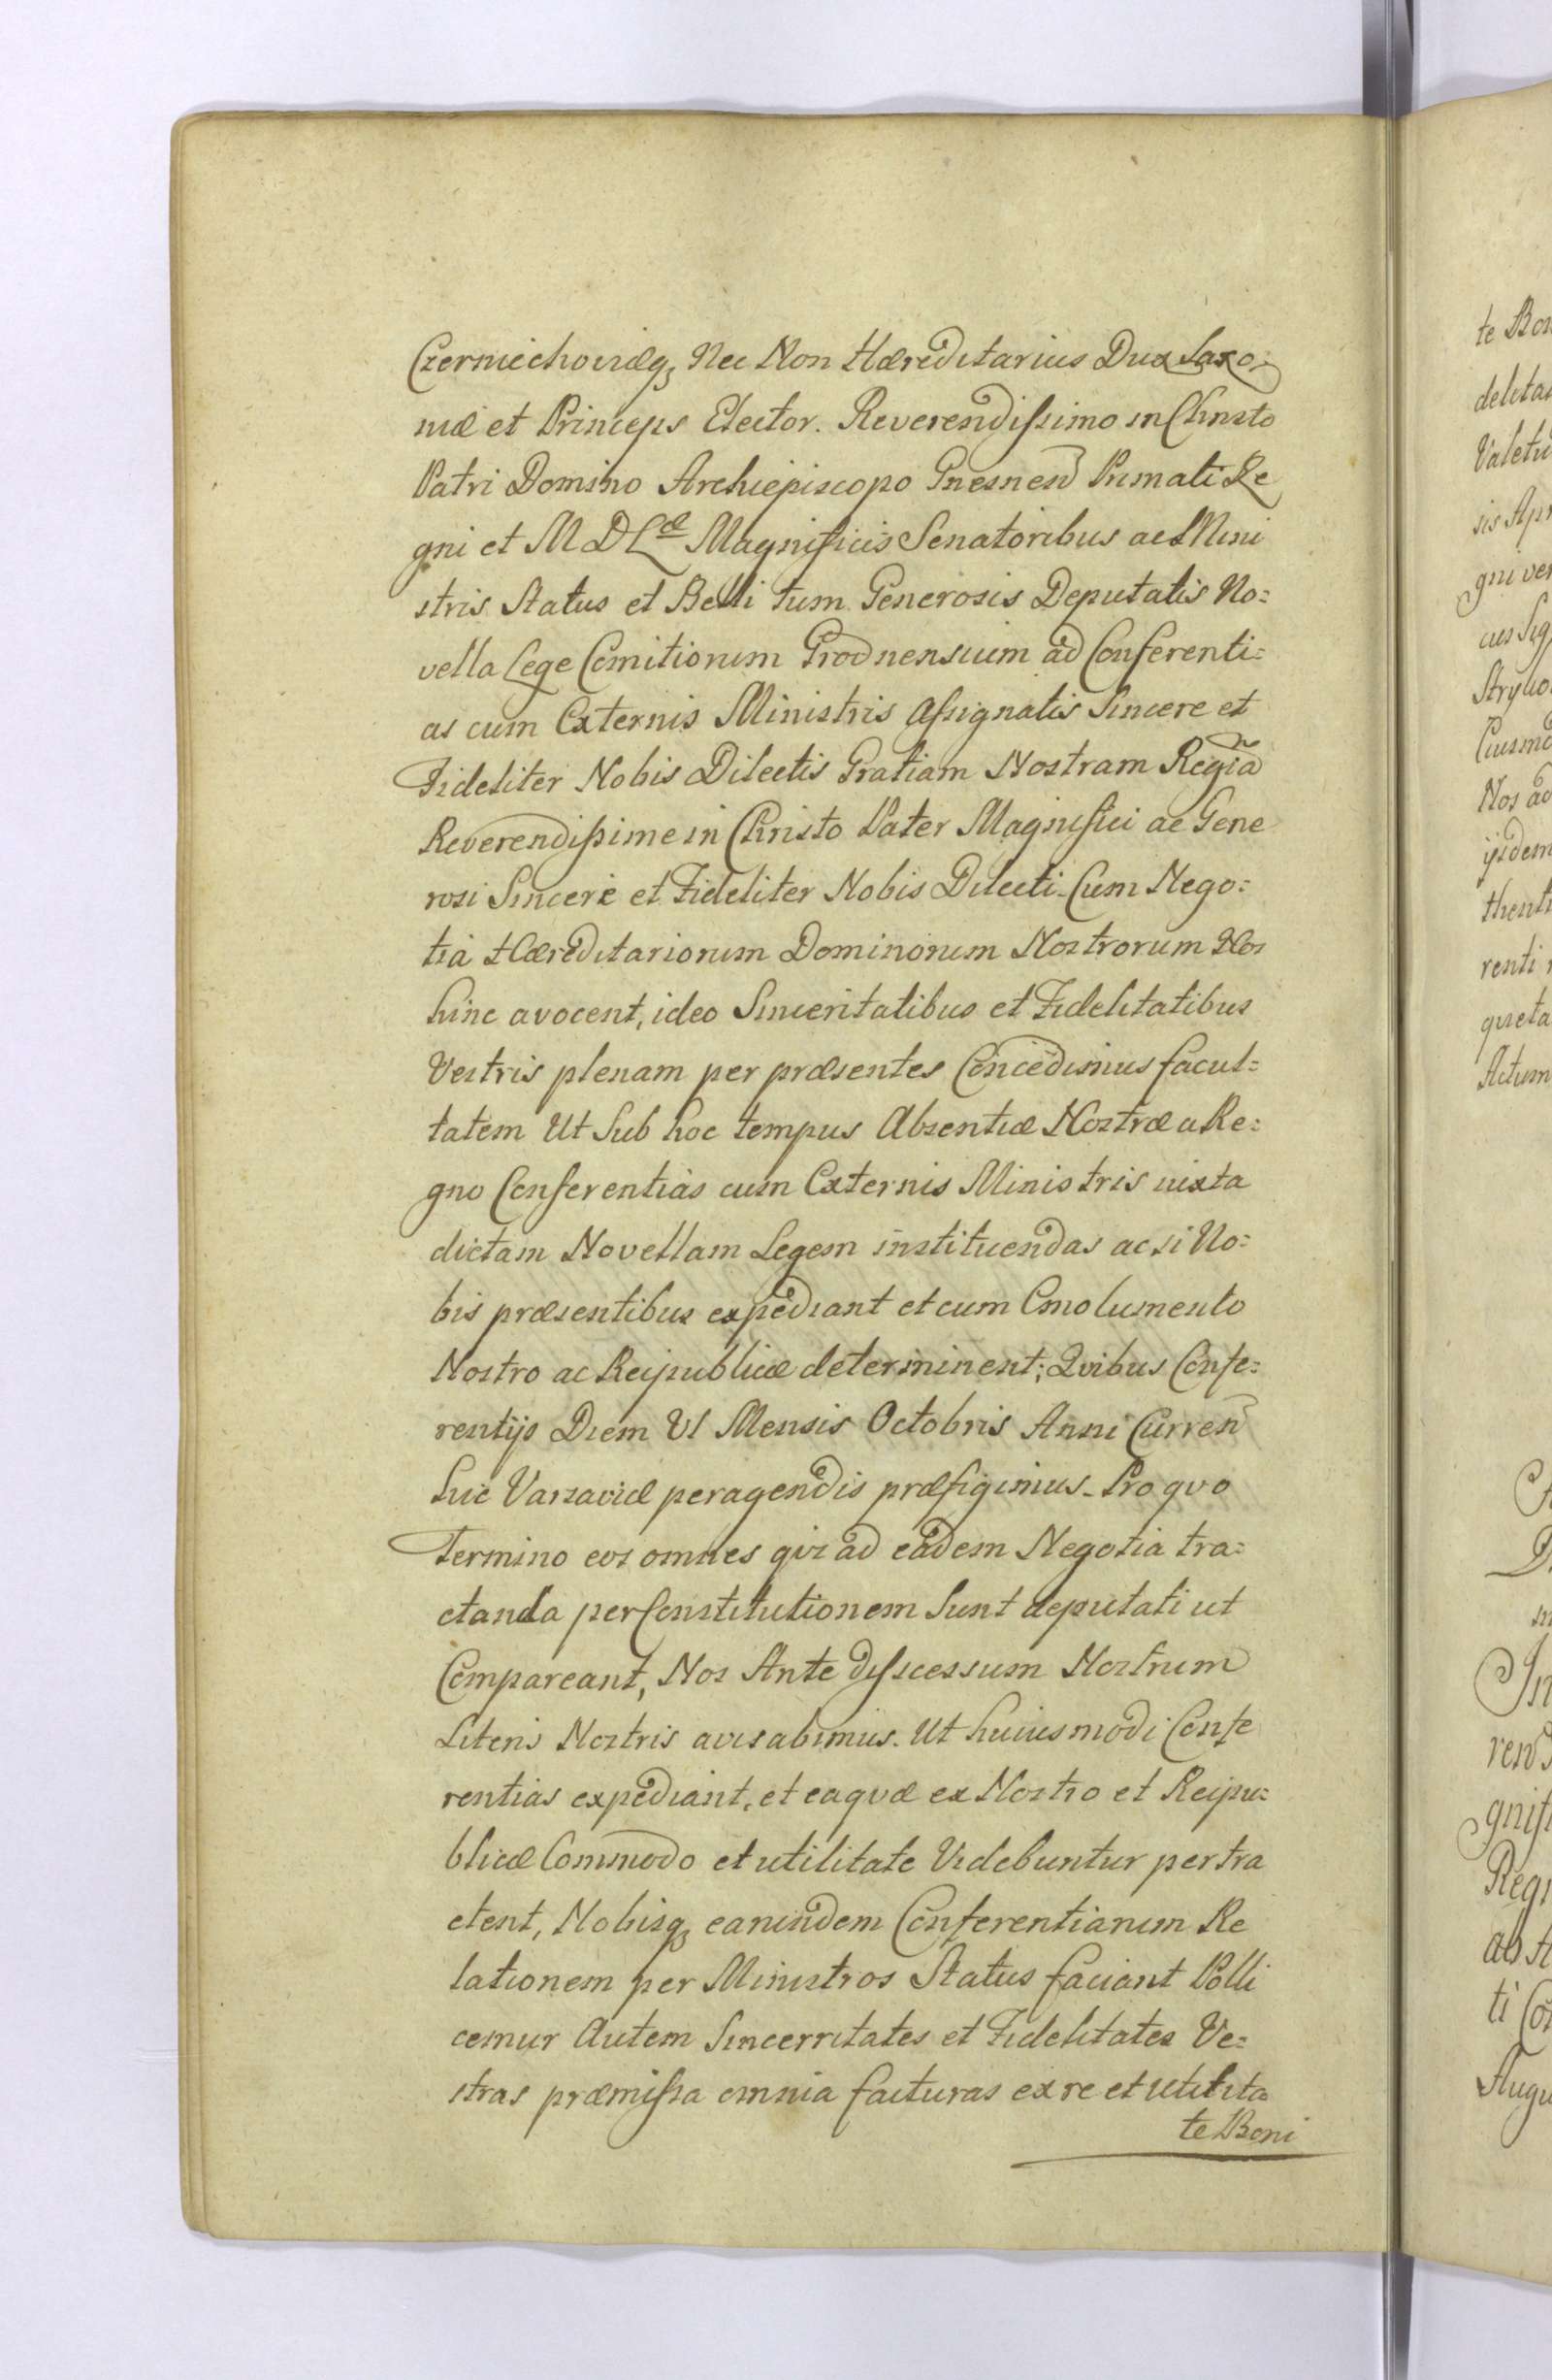 Czerniechoviæq3 Nec Non Hæreditarius Dux Saxo:
niæ et Princeps Elector. Reverendissimo in Christo
Patri Domino Archiepiscopo Gnesnen Primati Re
gni et M D Læ Magnificis Senatoribus ac Mini
stris Status et Belli tum Generosis Deputatis No=
vella Lege Comitiorum Grodnensium ad Conferenti=
as cum Externis Ministris assignatis Sincere et
Fideliter Nobis Dilectis Gratiam Nostram Regiã
Reverendissime in Christo Pater Magnifici ac Gene
rosi Sincere et Fideliter Nobis Dilecti. Cum Nego=
tia Hæreditariorum Dominorum Nostrorum Nos
hinc avocent, ideo Sinceritatibus et Fidelitatibus
Vestris plenam per præsentes Concedimus facul=
tatem Ut Sub hoc tempus Absentiæ Nostræ a Re=
gno Conferentias cum Externis Ministris iuxta
dictam Novellam Legem instituendas ac si No=
bis præsentibus expediant et cum Emolumento
Nostro ac Reipublicæ determinent; Quibus Confe=
rentijs Diem VI Mensis Octobris Anni Curren
huic Varsaviæ peragendis præfigimus. Pro quo
Termino eos omnes qui ad eadem Negotia tra=
ctanda per Constitutionem Sunt deputati ut
Compareant, Nos Ante discessum Nostrum
Literis Nostris avisabimus. Ut huiusmodi Confe
rentias expediant, et ea quæ ex Nostro et Reipu=
blicæ Commodo et utilitate Videbuntur pertra
ctent, Nobisq3 earundem Conferentiarum Re
lationem per Ministros Status faciant Polli
cemur Autem Sincerritates et Fidelitates Ve=
stras præmissa omnia facturas ex re et utilita=
te Boni
te Bon
Valetu
sis Apr
gni ver
Nos ad
ijsdem
renti
quieta
Actum